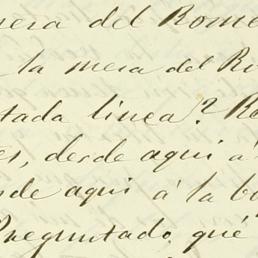 mera del Rome
la mesa del Ri
tada linea? Re
es, desde aqui á
nde aqui á la bo
Preguntado qué